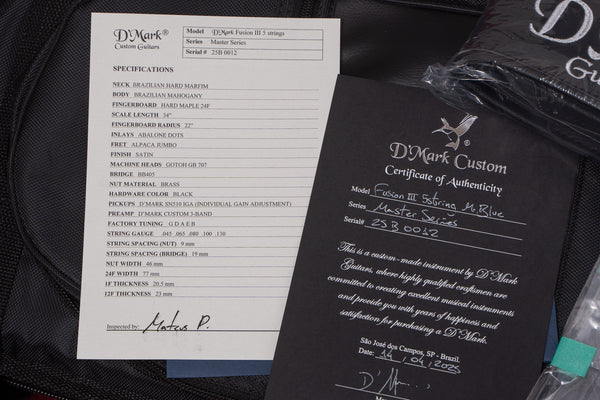 D'Mark®
Custom Guitars
Model D'Mark Fusion III 5 strings
Series Master Series
Serial # 25B 0012
SPECIFICATIONS
NECK BRAZILIAN HARD MARFIM
BODY BRAZILIAN MAHOGANY
FINGERBOARD HARD MAPLE 24F
SCALE LENGTH 34"
FINGERBOARD RADIUS 22"
INLAYS ABALONE DOTS
FRET ALPACA JUMBO
FINISH SATIN
MACHINE HEADS GOTOH GB 707
BRIDGE BB405
NUT MATERIAL BRASS
HARDWARE COLOR BLACK
PICKUPS D'MARK SN510 IGA (INDIVIDUAL GAIN ADJUSTMENT)
PREAMP D'MARK CUSTOM 3-BAND
FACTORY TUNING G D A E B
STRING GAUGE .045 .065 .080 .100 .130
STRING SPACING (NUT) 9 mm
STRING SPACING (BRIDGE) 19 mm
NUT WIDTH 46 mm
24F WIDTH 77 mm
1F THICKNESS 20.5 mm
12F THICKNESS 23 mm
Inspected by: Mateus P.
D'Mark Custom
Certificate of Authenticity
Model Fusion III 5string M.Blue
Series Master Series
Serial# 25B 0012
This is a custom-made instrument by D'Mark
Guitars, where highly qualified craftsmen are
committed to creating excellent musical instruments
and provide you with years of happiness and
satisfaction for purchasing a D'Mark.
São José dos Campos, SP - Brazil.
Date: 14 / 04 / 2025